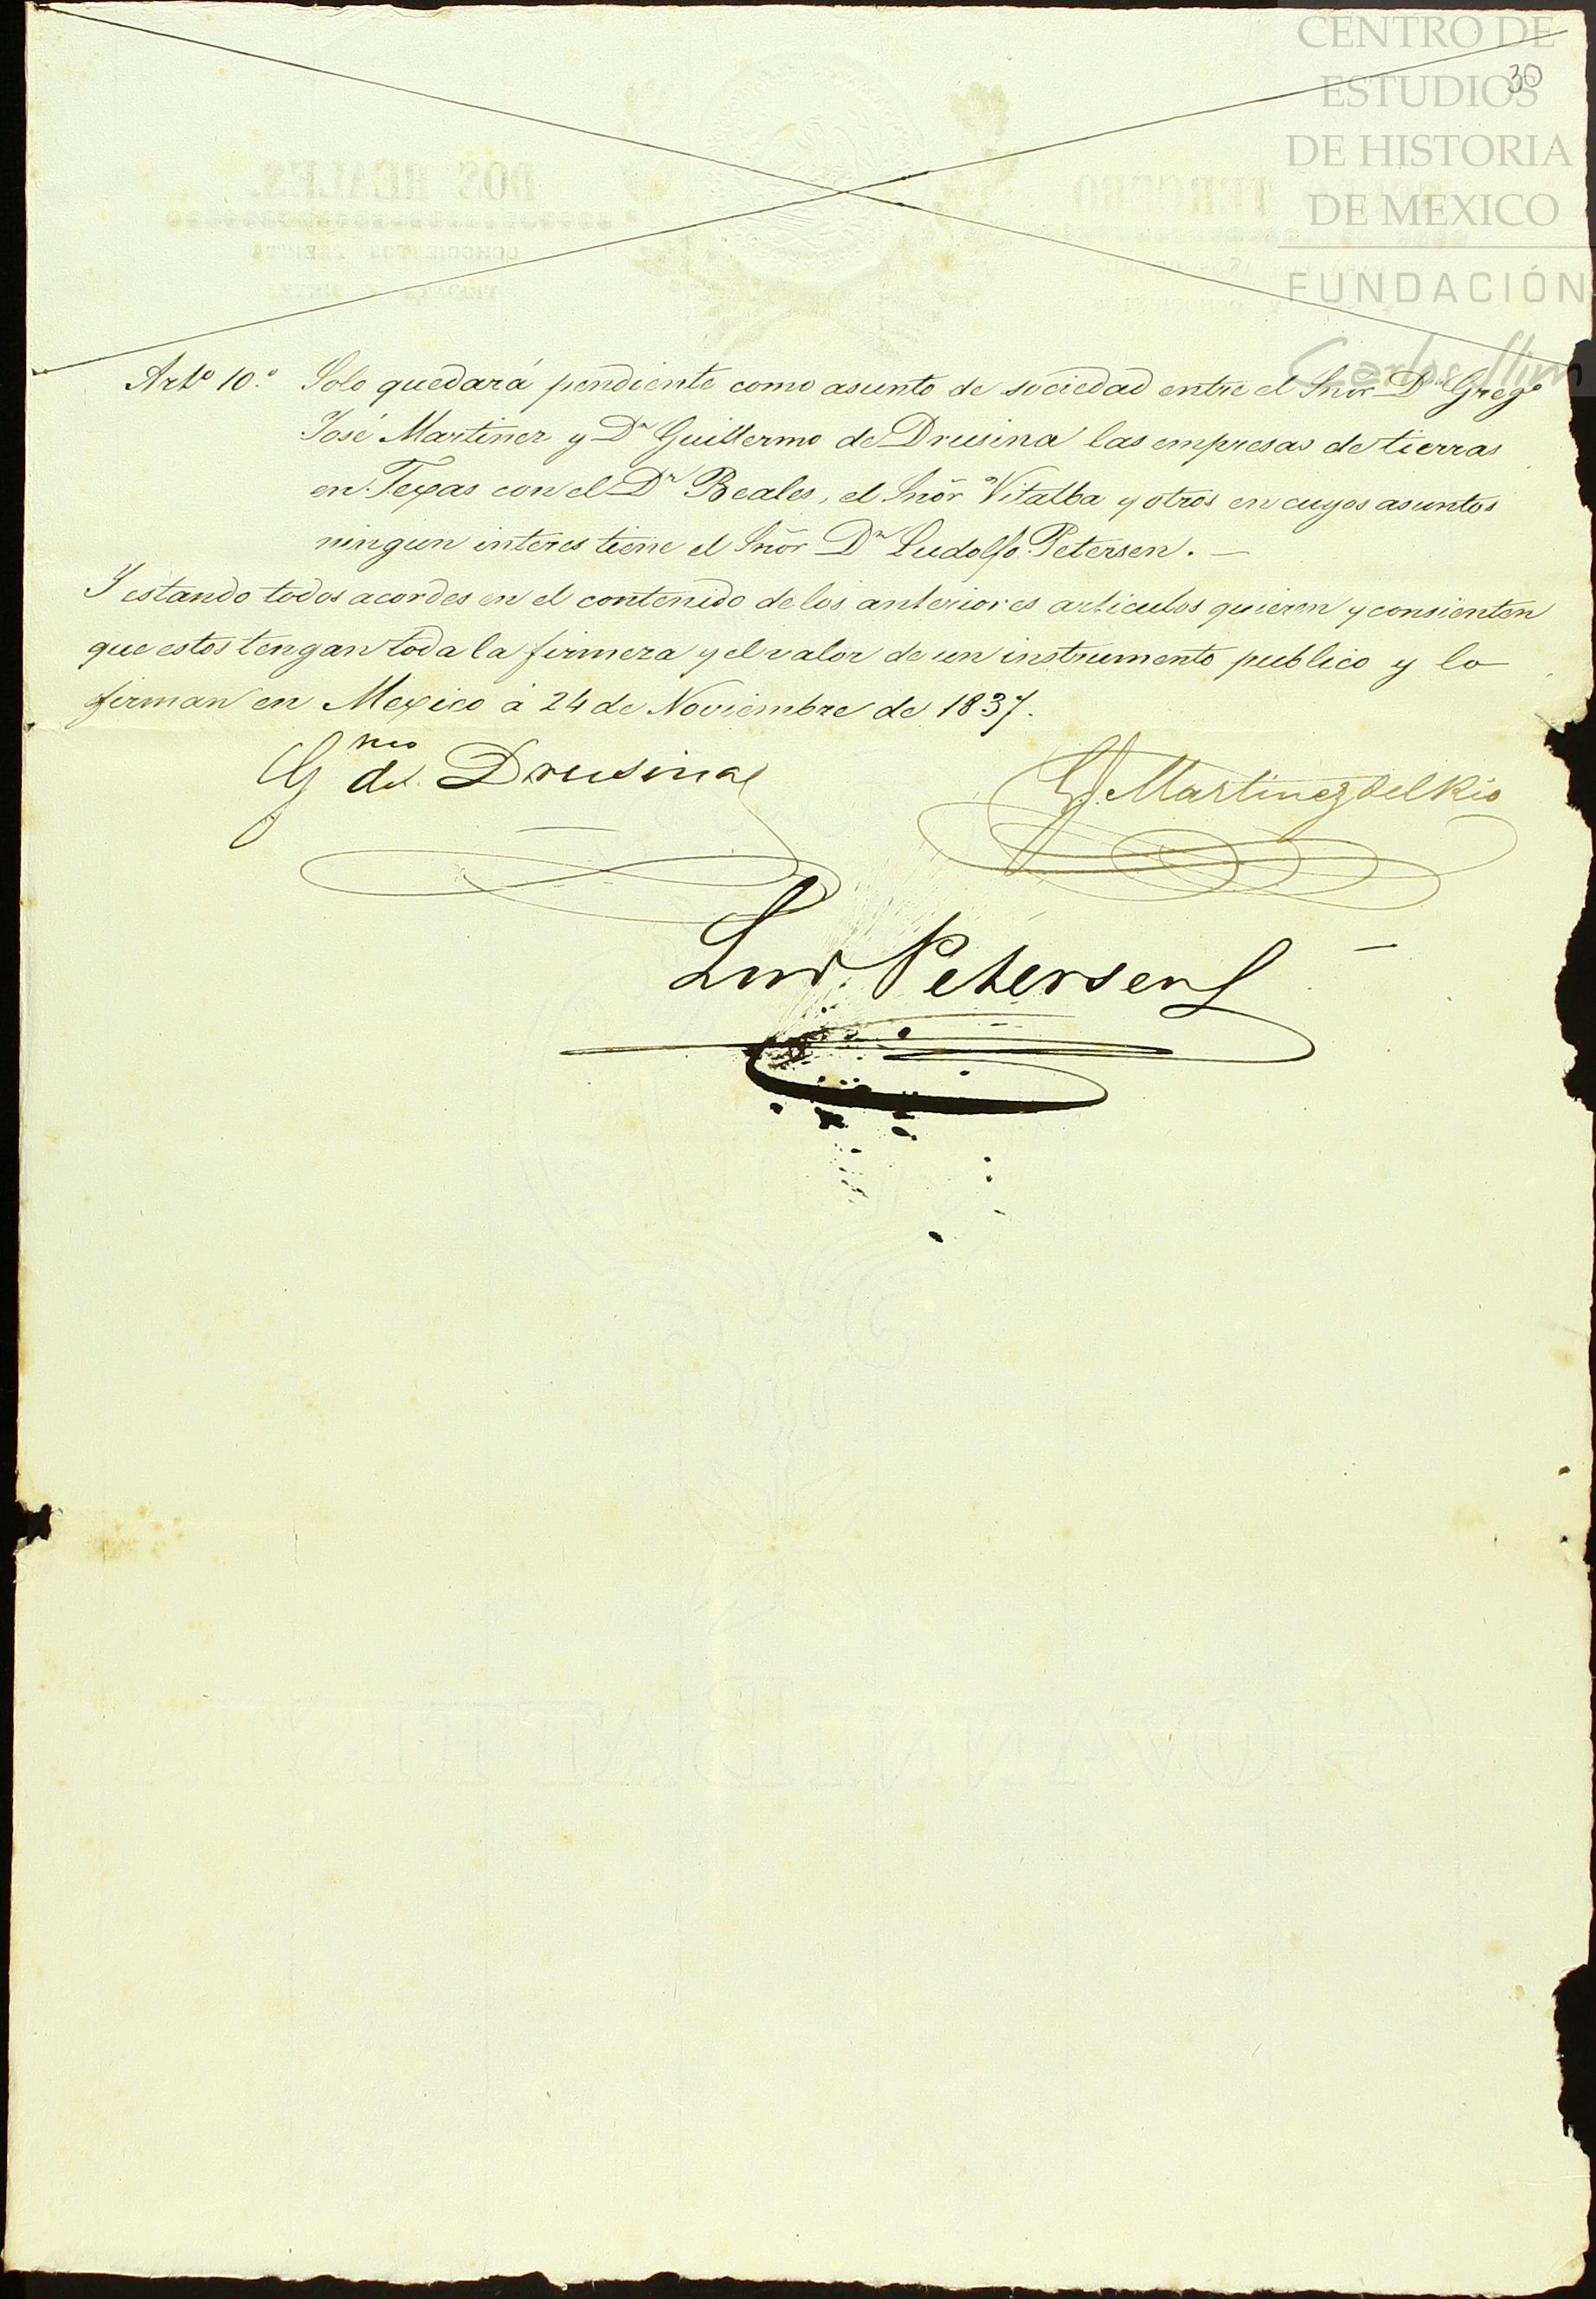 CENTRO DE
ESTUDIOS
DE HISTORIA
DE MEXICO
FUNDACIÓN
Carlos Slim
30
Artº 10.º Solo quedará pendiente como asunto de sociedad entre el Snõr Dn Gregº
José Martinez y Dn Guillermo de Drusina las empresas de tierras
en Texas con el Dr Beales, el Snõr Vitalba y otros en cuyos asuntos
ningun interes tiene el Snõr Dn Ludolfo Petersen. —
Y estando todos acordes en el contenido de los anteriores articulos quieren y consienten
que estos tengan toda la firmeza y el valor de un instrumento publico y lo
firman en Mexico á 24 de Noviembre de 1837.
Gmo de Drusina
G. J. Martinez del Rio
Lud. Petersen
DOS REALES.
TERCERO
OCHOCIENTOS TREINTA